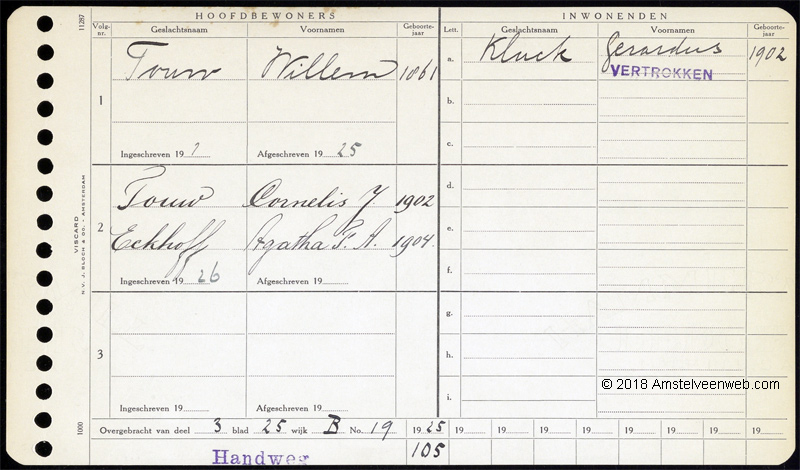 HOOFDBEWONERS
Volg-nr. Geslachtsnaam Voornamen Geboorte-jaar
1 Touw Willem 1861
Ingeschreven 19 ? Afgeschreven 19 25
2 Touw Cornelis J 1902
Eckhoff Agatha P. A. 1904.
Ingeschreven 19 26 Afgeschreven 19
3
Ingeschreven 19 Afgeschreven 19
INWONENDEN
Lett. Geslachtsnaam Voornamen Geboorte-jaar
a. Kluck Gerardus 1902
VERTROKKEN
b.
c.
d.
e.
f.
g.
h.
i.
© 2018 Amstelveenweb.com
Overgebracht van deel 3 blad 25 wijk B No. 19 19 25 19 19 19 19 19 19 19
Handweg 105
11287
VISCARD
N.V. J. BLOCH & CO. - AMSTERDAM
1000